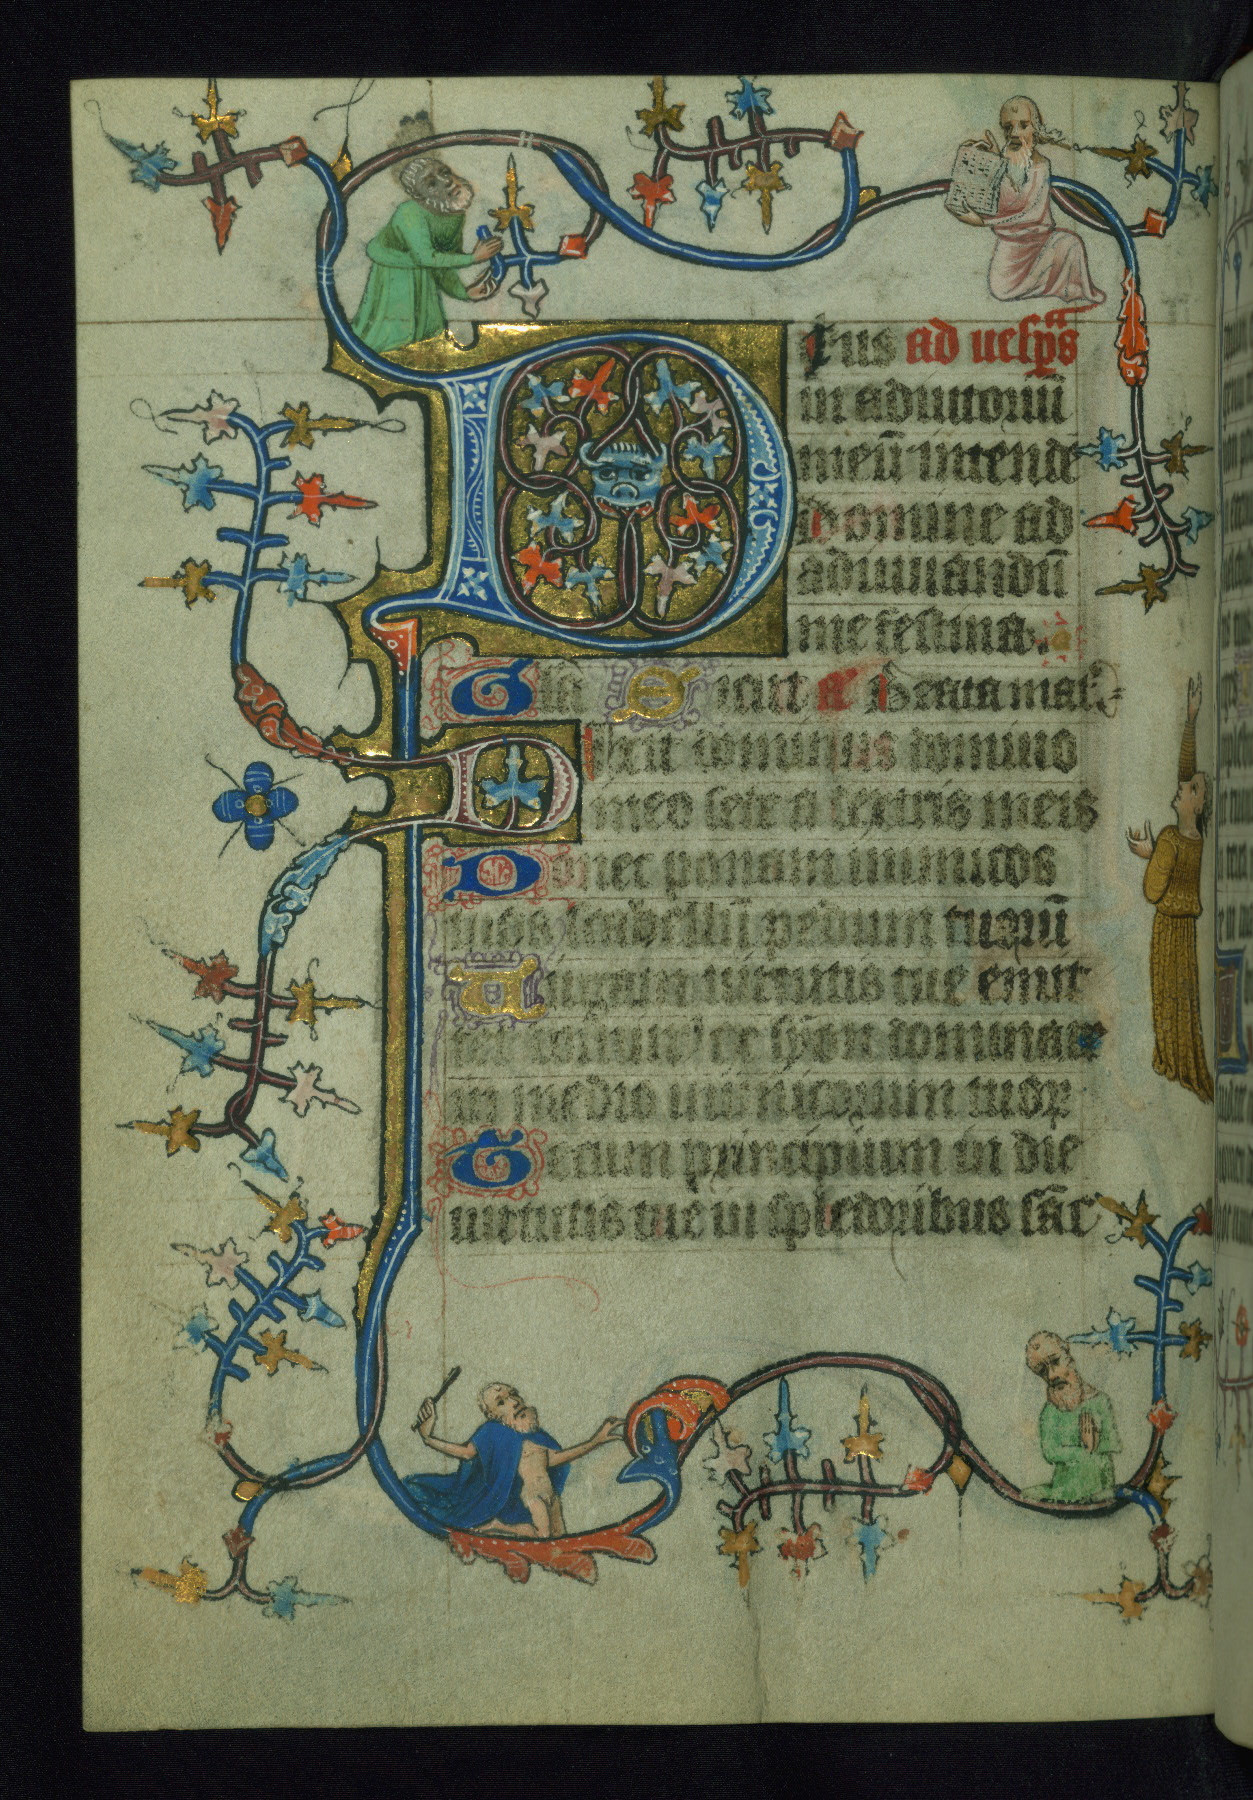 Deus ad uesp̄as
in adiutoriū
meū intende
Domine ad
adiuuandū
me festina.
Gl̄a Sicut a̅ Beata mat̄
Dixit dominus domino
meo sede a dextris meis
Donec ponam inimicos
tuos scabellū pedum tuorū
Uirgam uirtutis tue emit
tet dominus ex syon dominare
in medio inimicorum tuoꝝ
Tecum principium in die
uirtutis tue in splēdoribus sāc